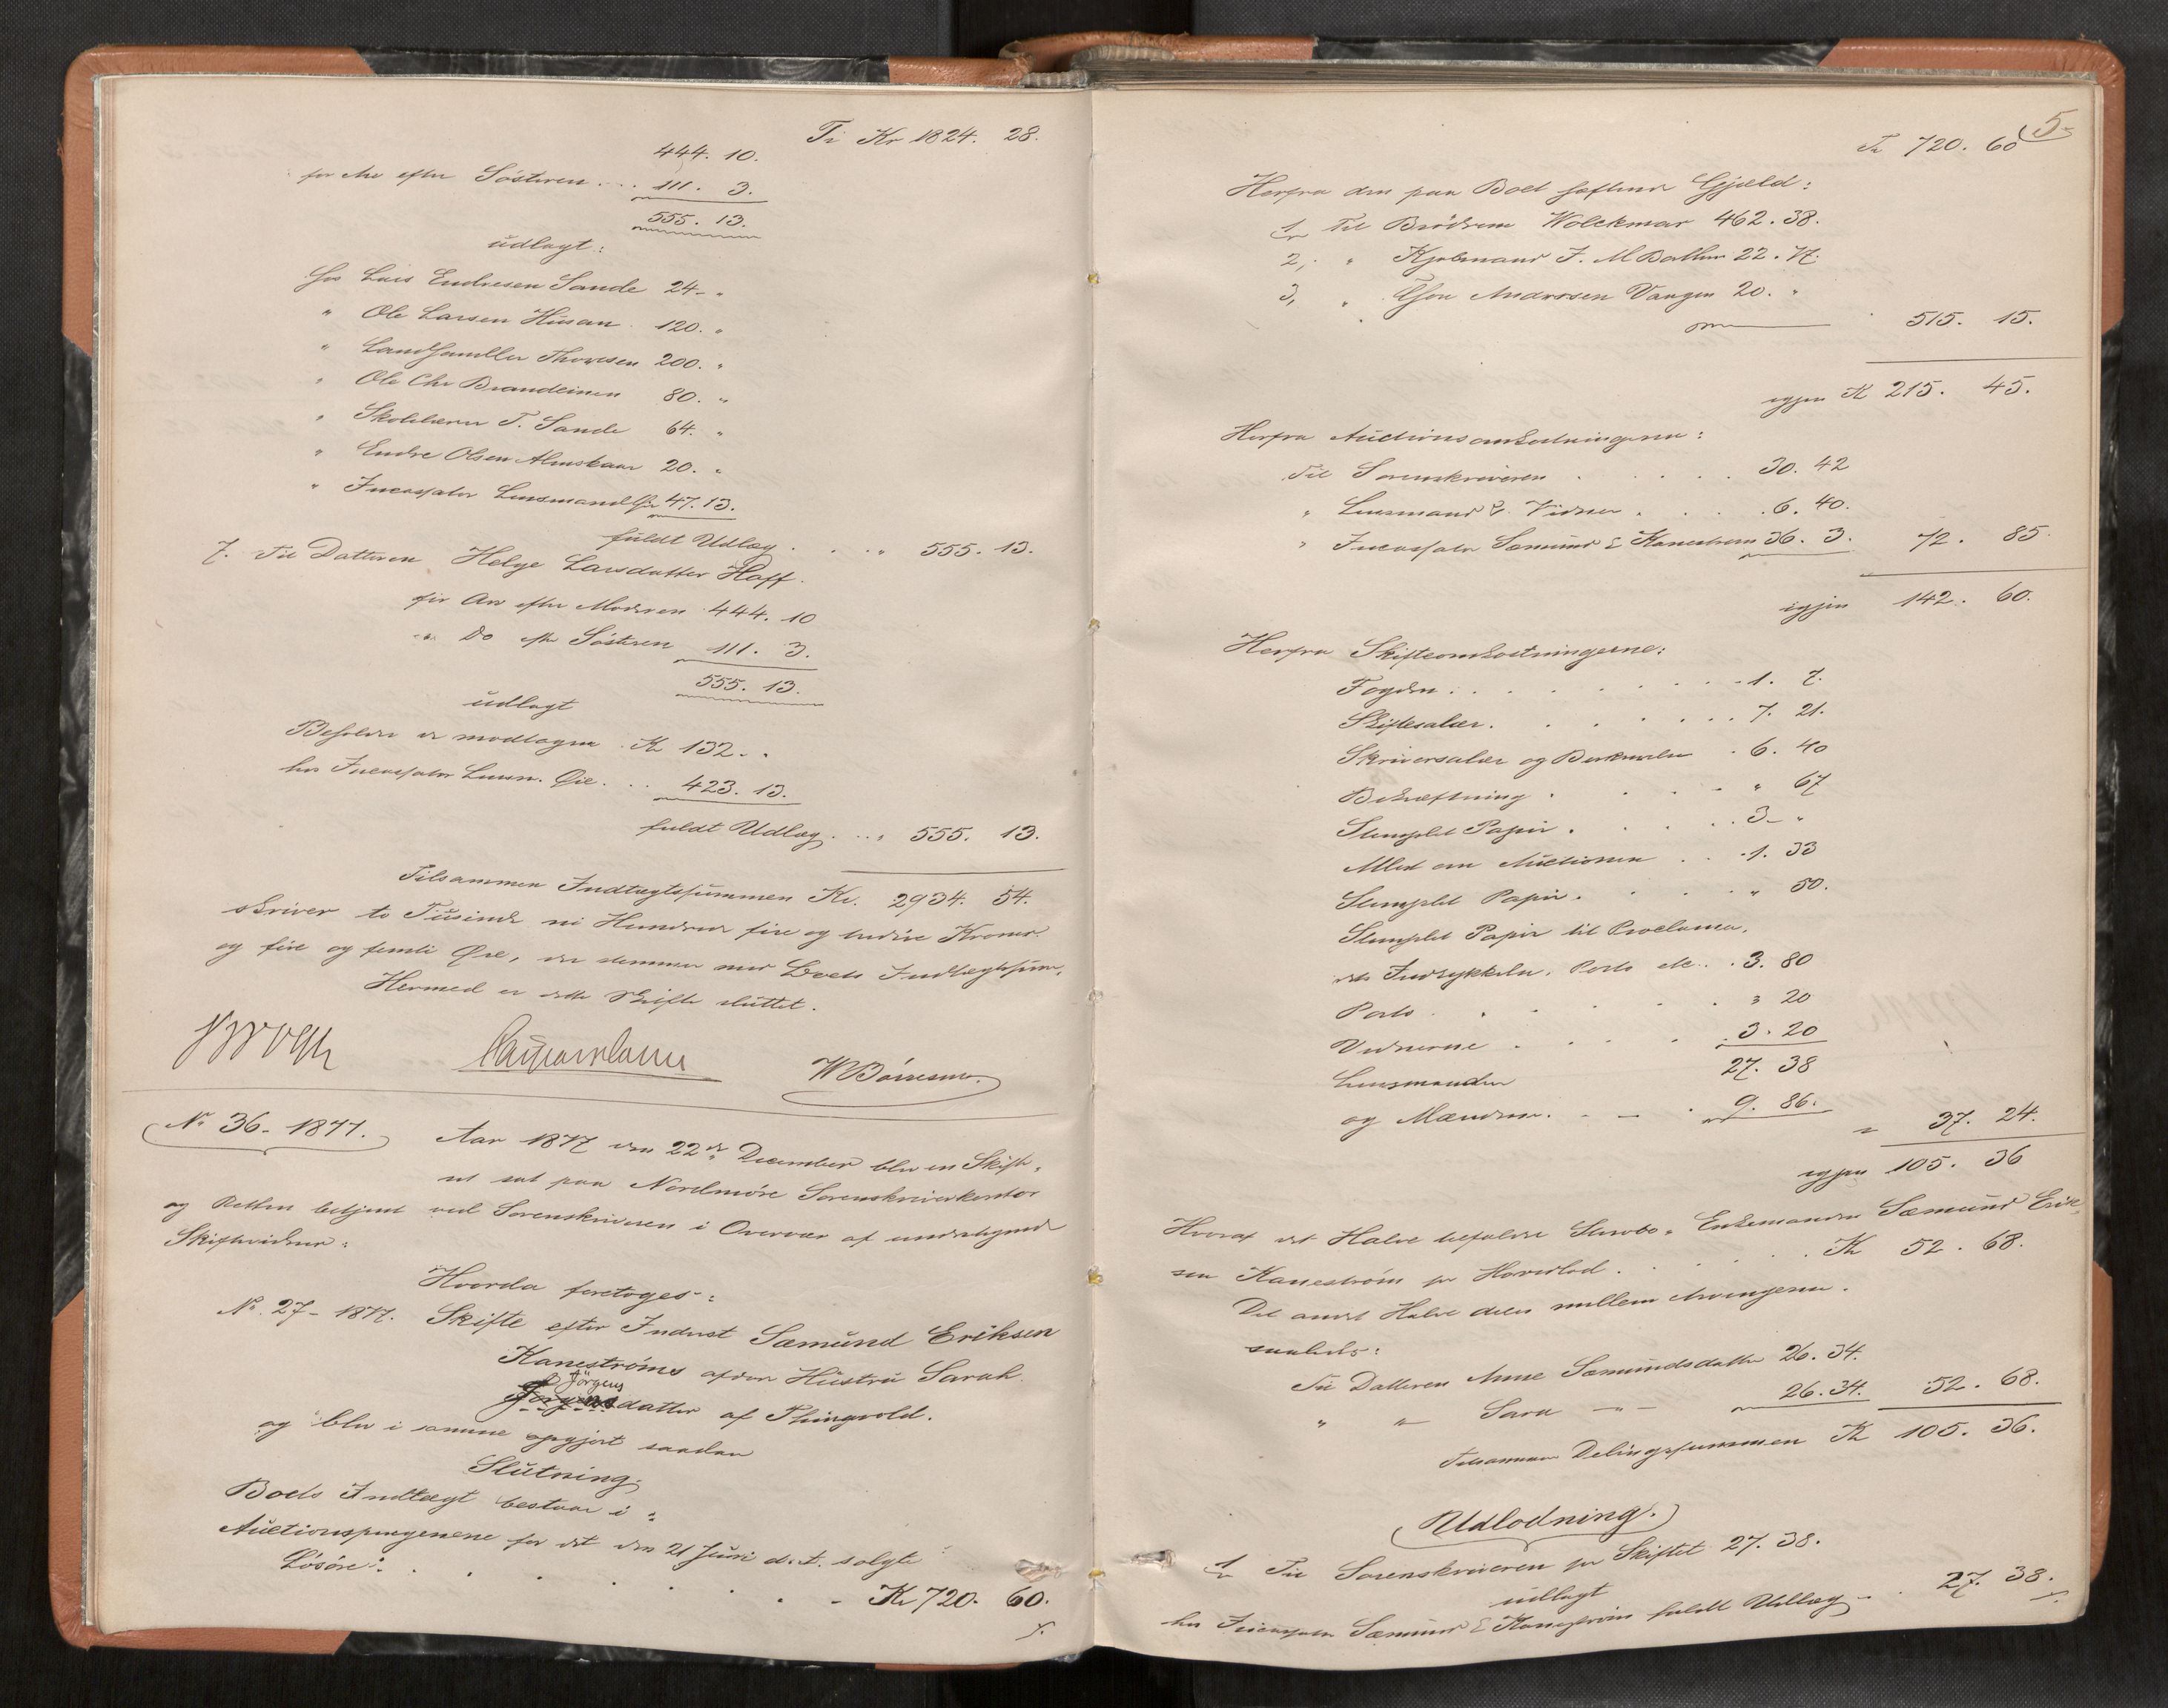 Ti Kr 1824. 28.
444. 10.
for Arv efter Søsteren . . . 111. 3.
555. 13.
udlagt:
hos Lars Endresen Sande 24 - "
" Ole Larsen Husan 120. "
" Landhandler Thoresen 200. "
" Ole Chr Brandeinen 80. "
" Skolelærer T. Sande 64. "
" Endre Olsen Almskaar 20. "
" Incassator Lensmand 47. 13.
fuldt Udlæg . . . " 555. 13.
7. Til Datteren Helge Larsdatter Hoff.
for Arv efter Moderen 444. 10
" Do efter Søsteren 111. 3.
555. 13.
udlagt
Beholder er modtagen Kr 132. "
hos Incassator Lensm. Øie . . . 423. 13.
fuldt Udlæg . . " 555. 13.
Tilsammen Indtægtssummen Kr. 2934. 54.
skriver to Tusinde ni Hundrede fire og tredive Kroner
og fire og femti Øre, der stemmer med Boets Indtægtssum.
Hermed er dette Skifte sluttet.
W Börresen
No 36 - 1877.
Aar 1877 den 22de December blev en Skifte-
ret sat paa Nordmøre Sorenskriverkontor
og Retten betjent ved Sorenskriveren i Overvær af undertegnede
Skiftevidner:
Hvorda foretoges:
No. 27 - 1877. Skifte efter Inderst Sæmund Eriksen
Kanestrøms afdøde Hustru Sarah
Jörgens
datter af Thingvold.
og blev i samme opgjort saadan
Slutning.
Boets Indtægt bestaar i:
Auctionspengenene for det den 21 Juni d. A. solgte
Løsøre: . . . . . . . - Kr 720. 60.
5
Tr 720. 60
Herfra den paa Boet heftende Gjæld:
1. Til Brødrene Wolckmar 462. 38.
2, " Kjøbmand J. M Dall 22. 77.
3, " Andresen Vangen 20. "
515. 15.
igjen Kr 215. 45.
Herfra Auctionsomkostningerne:
Til Sorenskriveren . . . . . 30. 42
" Lensmand & Vidner . . . . 6. 40.
" Incassator Sæmund E Kanestrøm 36. 3. 72. 85
igjen 142. 60.
Herfra Skifteomkostningerne:
Fogden . . . . . . . 1. 7.
Skiftesalær . . . . . . 7. 21.
Skriversalær og Beskrivelse . 6. 40
Bekræftning . . . . . " 67
Stemplet Papir . . . . . 3 - "
Meld om Auctionen . . . 1. 33
Stemplet Papir . . . . . " 50.
Stemplet Papir til Proclama,
dets Indrykkelse, Porto etc. . 3. 80
Porto . . . . . . " 20
Vidnerne . . . . . 3. 20
27. 38
Lensmanden
og Mændene . - - . 9. 86.
" 37. 24.
igjen 105. 36
Hvoraf det Halve tilfalder Stervbo- Enkemanden Sæmund Erik-
sen Kanestrøm som Hovedlod . . . . Kr 52. 68.
Det andet Halve deles mellem Arvingerne.
saaledes:
Til Datteren Anne Sæmundsdatter 26. 34.
" " Sara - " - 26. 34. 52. 68.
Tilsammen Delingssummen Kr 105. 36.
Udlodning.
1. Til Sorenskriveren for Skiftet 27. 38.
udlagt
hos Incassator Sæmund E Kanestrøm fuldt Udlæg - . 27. 38.